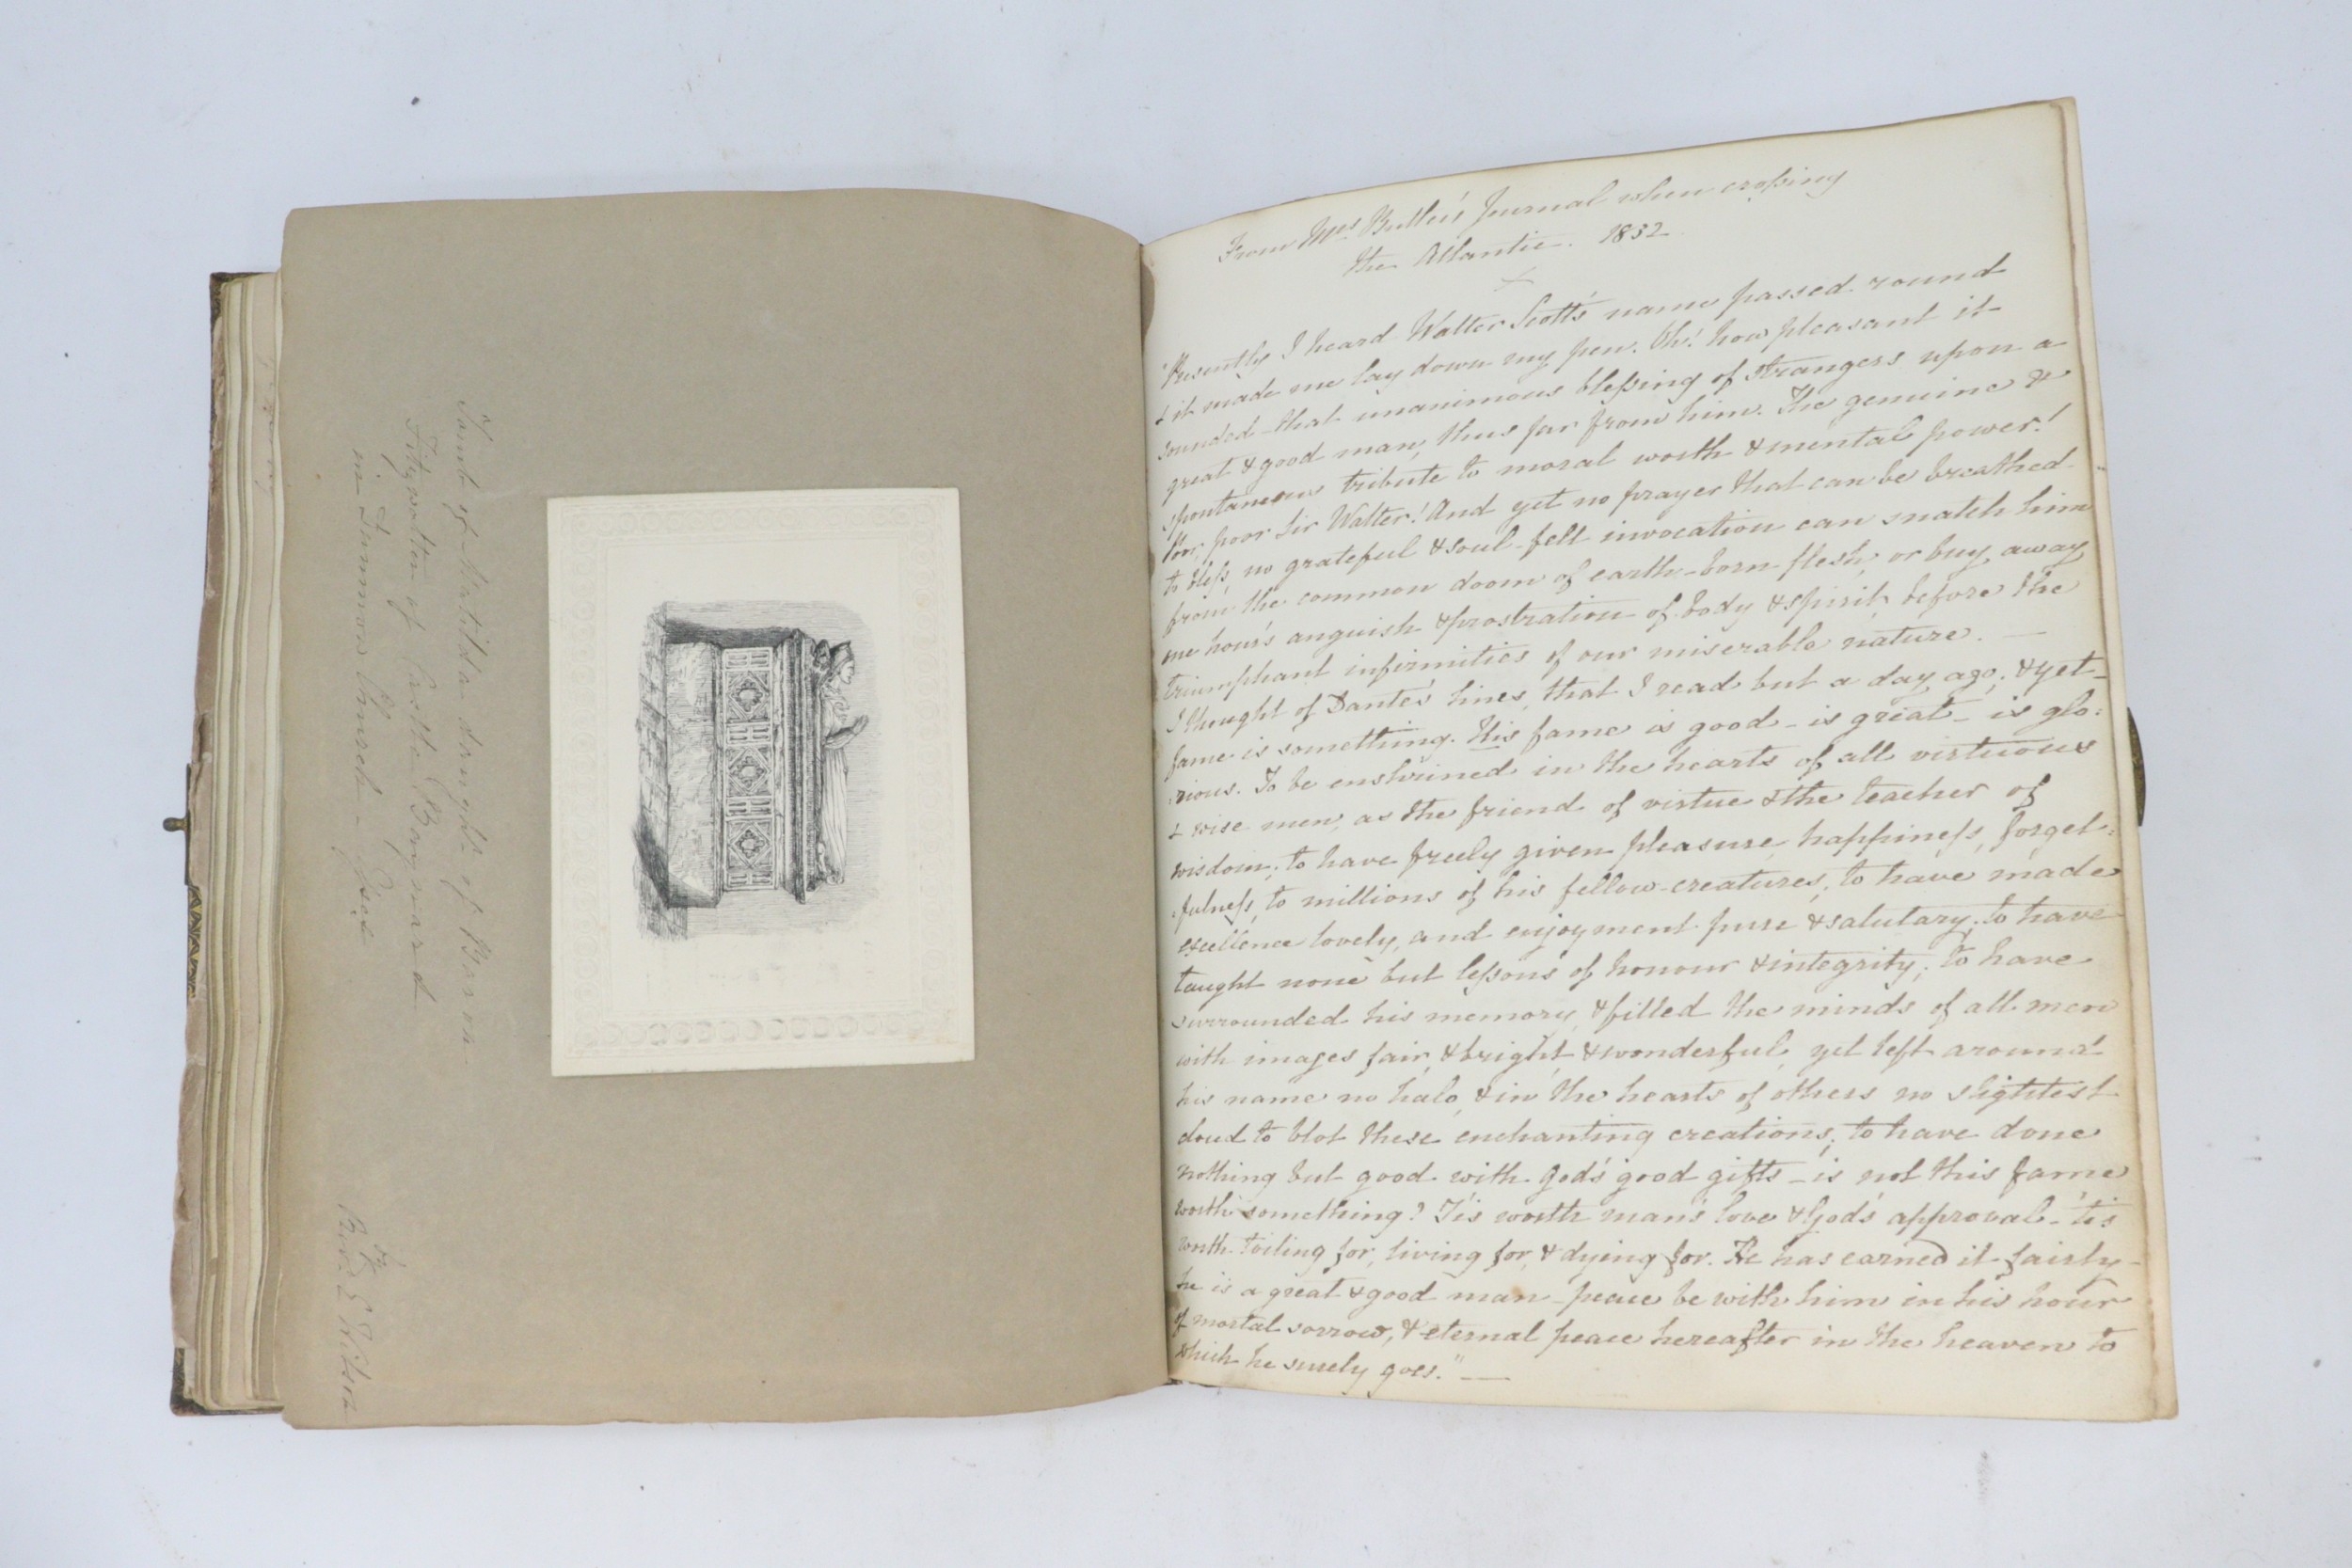 Tomb of Matilda daught. of Baron
Fitzwalter of Castle Baynard
in Dunmow Church – Essex
by
Revd. E Wilson
From Mrs Butler's Journal when croſsing
the Atlantic. 1832
"Presently I heard Walter Scott's name passed round
& it made me lay down my pen. Oh! how pleasant it
sounded – that unanimous bleſsing of strangers upon a
great & good man, thus far from him. The genuine &
spontaneous tribute to moral worth & mental power!
Poor, poor Sir Walter! And yet no prayer that can be breathed
to bleſs, no grateful & soul-felt invocation can snatch him
from the common doom of earth-born flesh, or buy away
one hour's anguish & prostration of body & spirit, before the
triumphant infirmities of our miserable nature. —
I thought of Dante's lines, that I read but a day ago; & yet –
fame is something. His fame is good – is great – is glo:
:rious. To be enshrined in the hearts of all virtuous
& wise men, as the friend of virtue & the teacher of
wisdom; to have freely given pleasure, happineſs, forget:
:fulneſs, to millions of his fellow-creatures; to have made
excellence lovely, and enjoyment pure & salutary; to have
taught none but leſsons of honour & integrity; to have
surrounded his memory, & filled the minds of all men
with images fair, & bright, & wonderful, yet left around
his name no halo, & in the hearts of others no slightest
cloud to blot these enchanting creations; to have done
nothing but good with God's good gifts – is not this fame
worth something? 'Tis worth man's love & God's approval – 'tis
worth toiling for, living for, & dying for. He has earned it fairly –
he is a great & good man – peace be with him in his hour
of mortal sorrow, & eternal peace hereafter in the heaven to
which he surely goes." —